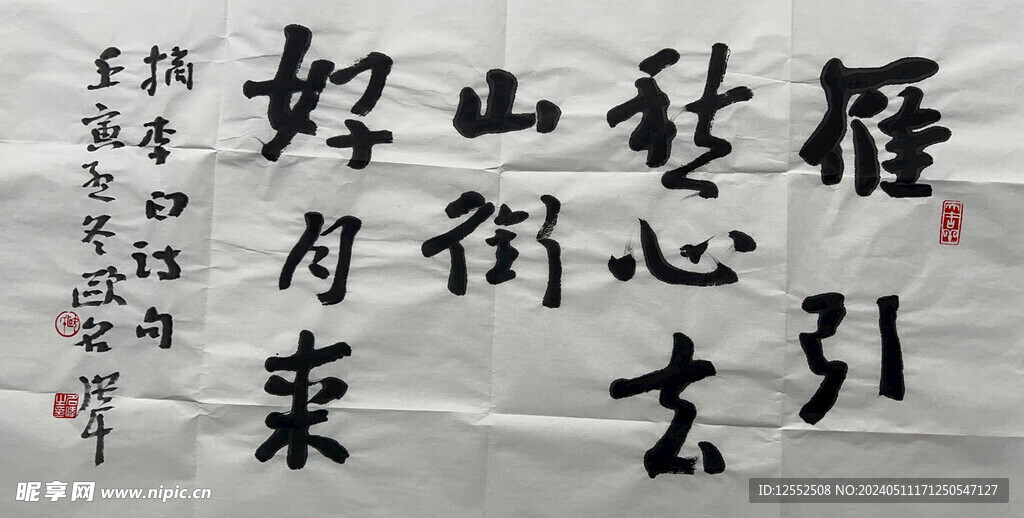 雁引
愁心去
山衔
好月来
摘李白诗句
壬寅孟冬歐名
昵享网 www.nipic.cn
ID:12552508 NO:20240511171250547127